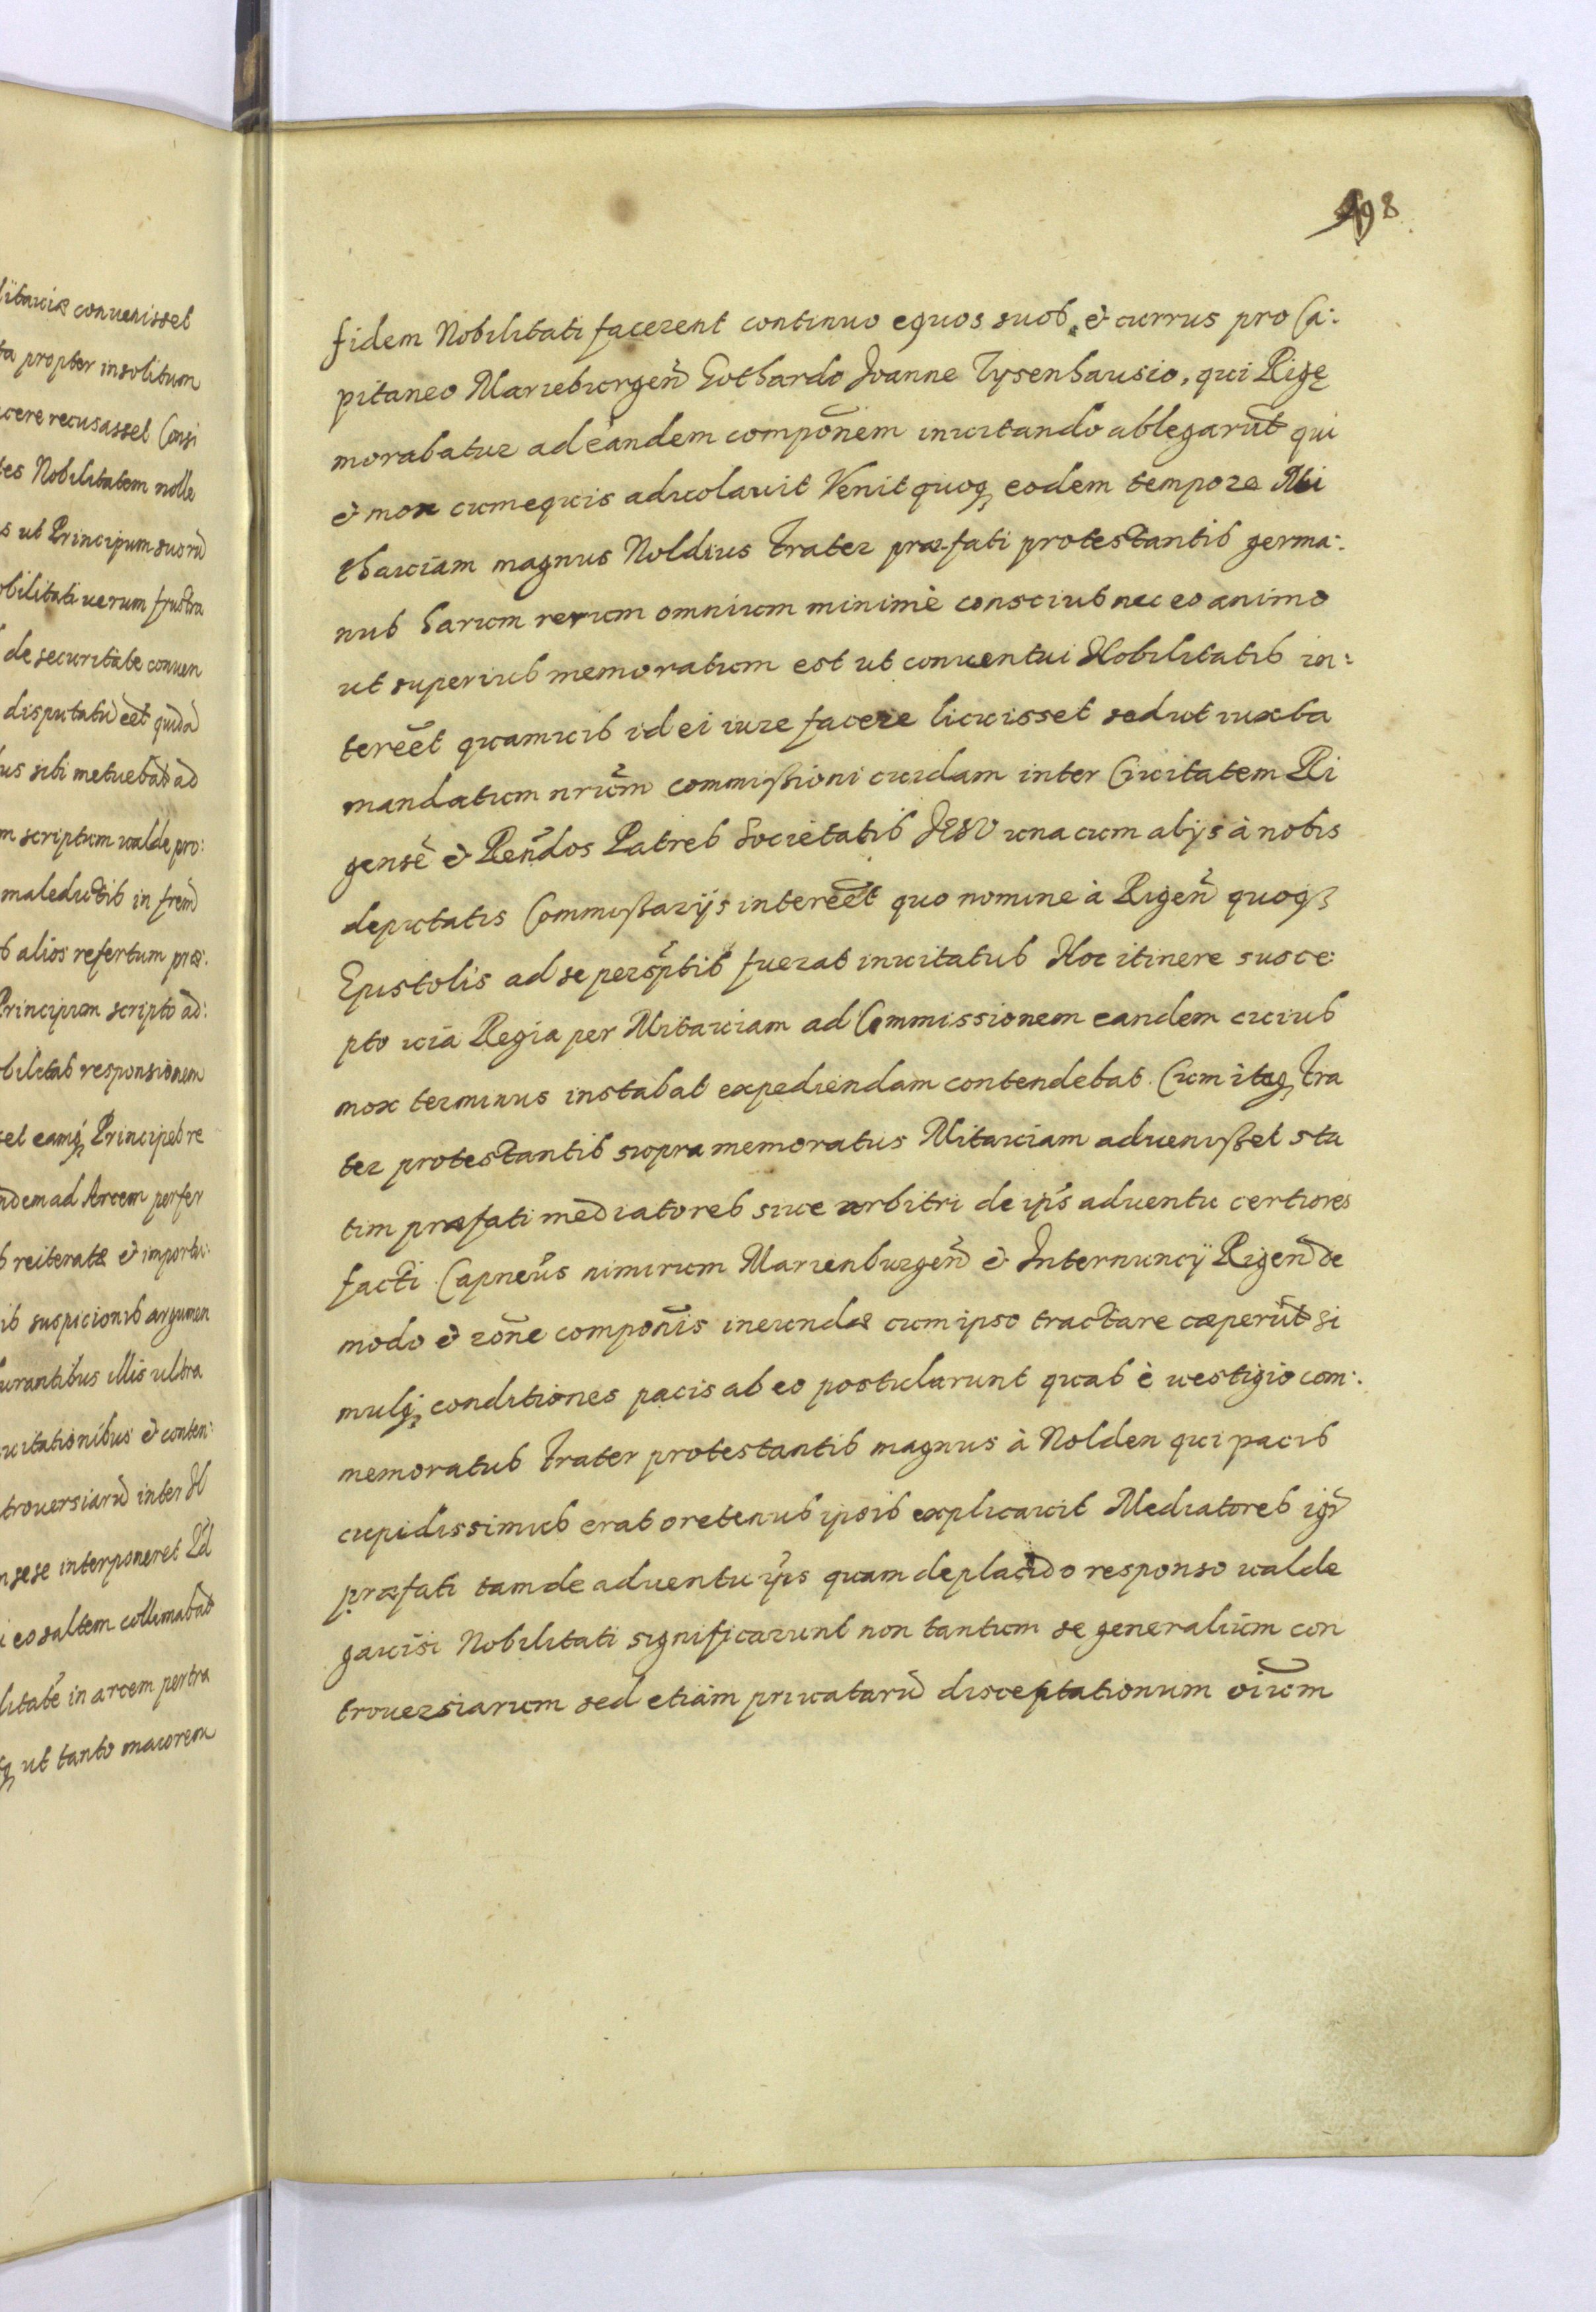 litauiæ conuenisset
ta propter insolitum
cere recusasset Consi
tes Nobilitatem nolle
s ut Principum suorũ
obilitati uerum frustra
de securitate conuen
disputatũ eẽt quidã
us sibi metuebãt ad
m scriptum ualde pro:
maledictis in frem̃
s alios refertum præ:
Principum scripto ad:
obilitas responsionem
sel eamq́ Principes re
ndem ad Arcem perfer
s reiteratæ & importu:
is suspicionis argumen
urantibus illis ultra
uitationibus & conten:
trouersiarũ inter N
n sese interponeret Id
i eo saltem collimabãt
litatẽ in arcem pertra
q ut tanto maiorem
498
fidem Nobilitati facerent continuo equos suos, & currus pro Ca:
pitaneo Marieburgeñ Gothardo Joanne Tysenhausio, qui Rigę
morabatur ad eandem compõnem inuitando ablegarũt qui
& mox cum equis aduolauit Venit quoq eodem tempore Mi
thauiam magnus Noldius frater præfati protestantis germa:
nus harum rerum omnium minimè conscius nec eo animo
ut superius memoratum est ut conuentui Nobilitatis in:
tereẽt quamuis id ei iure facere licuisset sed ut iuxta
mandatum nr̃um commißioni cuidam inter Ciuitatem Ri
gensẽ & Reñdos Patres Societatis JESV una cum alijs à nobis
deputatis Commißarijs intereẽt quo nomine à Rigeñ quoq3
Epistolis ad se perscr̃ptis fuerat inuitatus Hoc itinere susce:
pto uia Regia per Mitauiam ad Commissionem eandem cuius
mox terminus instabat expediendam contendebat. Cum itaq fra
ter protestantis supra memoratus Mitauiam aduenißet sta
tim præfati mediatores siue arbitri de ip̃s aduentu certiores
facti Capneũs nimirum Marienburgeñ & Internuncij Rigeñ de
modo & rõne compoñis ineundæ cum ipso tractare cæperũt si
mulq conditiones pacis ab eo postularunt quas è uestigio com:
memoratus frater protestantis magnus à Nolden qui pacis
cupidissimus erat oretenus ipsis explicauit Mediatores igr̃
præfati tam de aduentu ip̃s quam de placido responso ualde
gauisi Nobilitati significarunt non tantum se generalium con
trouersiarum sed etiam priuatarũ disceptationum oĩum